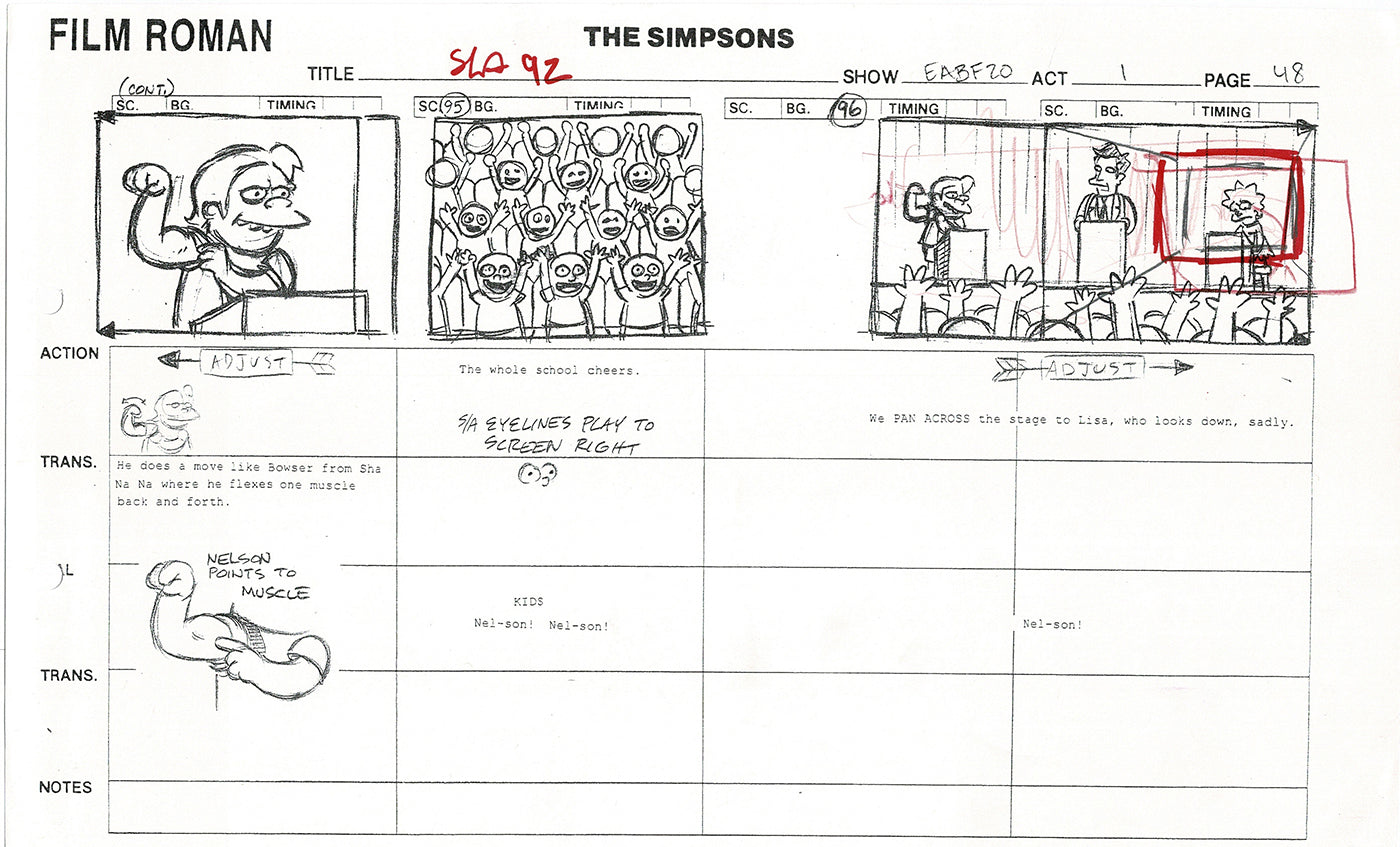 FILM ROMAN
THE SIMPSONS
TITLE SLA 92 SHOW EABF20 ACT 1 PAGE 48
(CONT.)
SC. BG. TIMING SC. 95 BG. TIMING SC. BG. 96 TIMING SC. BG. TIMING
ACTION
ADJUST
The whole school cheers.
S/A EYELINES PLAY TO
SCREEN RIGHT
ADJUST
We PAN ACROSS the stage to Lisa, who looks down, sadly.
TRANS.
He does a move like Bowser from Sha
Na Na where he flexes one muscle
back and forth.
L
NELSON
POINTS TO
MUSCLE
KIDS
Nel-son! Nel-son!
Nel-son!
TRANS.
NOTES